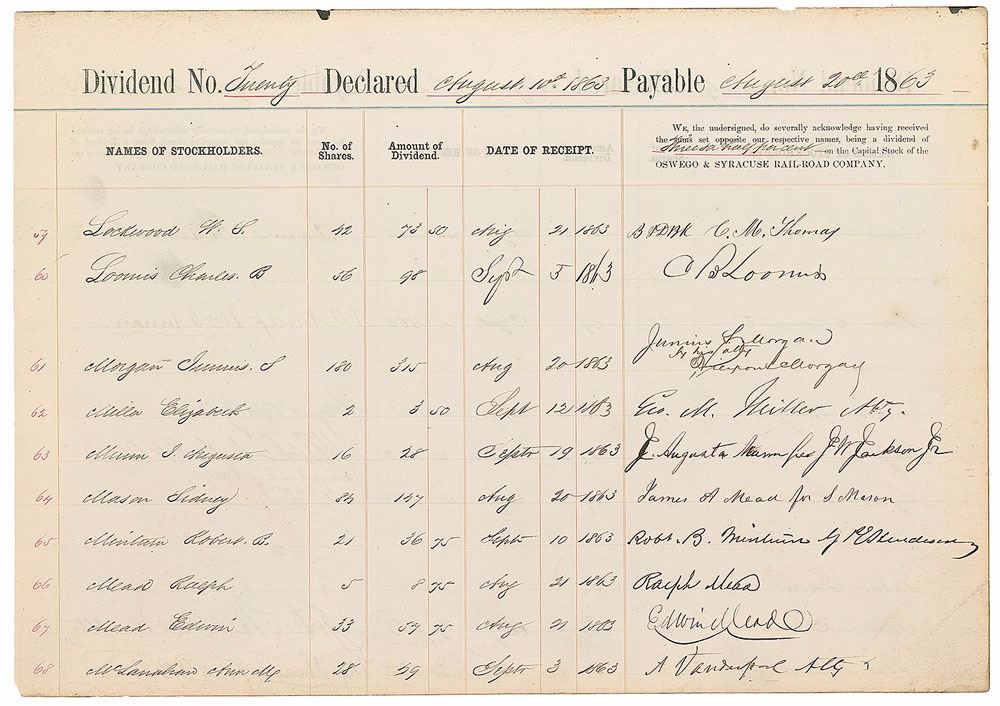 Dividend No. Twenty Declared August 10th 1863 Payable August 20th 1863
NAMES OF STOCKHOLDERS. No. of Shares. Amount of Dividend. DATE OF RECEIPT. WE, the undersigned, do severally acknowledge having received
the sums set opposite our respective names, being a dividend of
Three & a half per cent on the Capital Stock of the
OSWEGO & SYRACUSE RAIL-ROAD COMPANY.
59 Lockwood W. S. 42 73 50 Aug 21 1863 C. M. Thomas
60 Loomis Charles. B 56 98 Sept 5 1863 C B Loomis
Junius S Morgan
by his atty
61 Morgan Junius. S 180 315 Aug 20 1863 J Pierpont Morgan
62 Elizabeth 2 3 50 Sept 12 1863 Geo. M. Miller Atty.
63 Augusta 16 28 Septr 19 1863 J. Augusta J W Jackson Jr
64 Mason Sidney 84 147 Aug 20 1863 James A Mead for S Mason
65 Minturn Robert. B. 21 36 75 Septr 10 1863 Robt. B. Minturn by
66 Mead Ralph 5 8 75 Aug 21 1863 Ralph Mead
67 Mead Edwin 33 57 75 Aug 21 1863 Edwin Mead
68 McLanahan Ann 28 49 Septr 3 1863 A Vanderpoel Atty